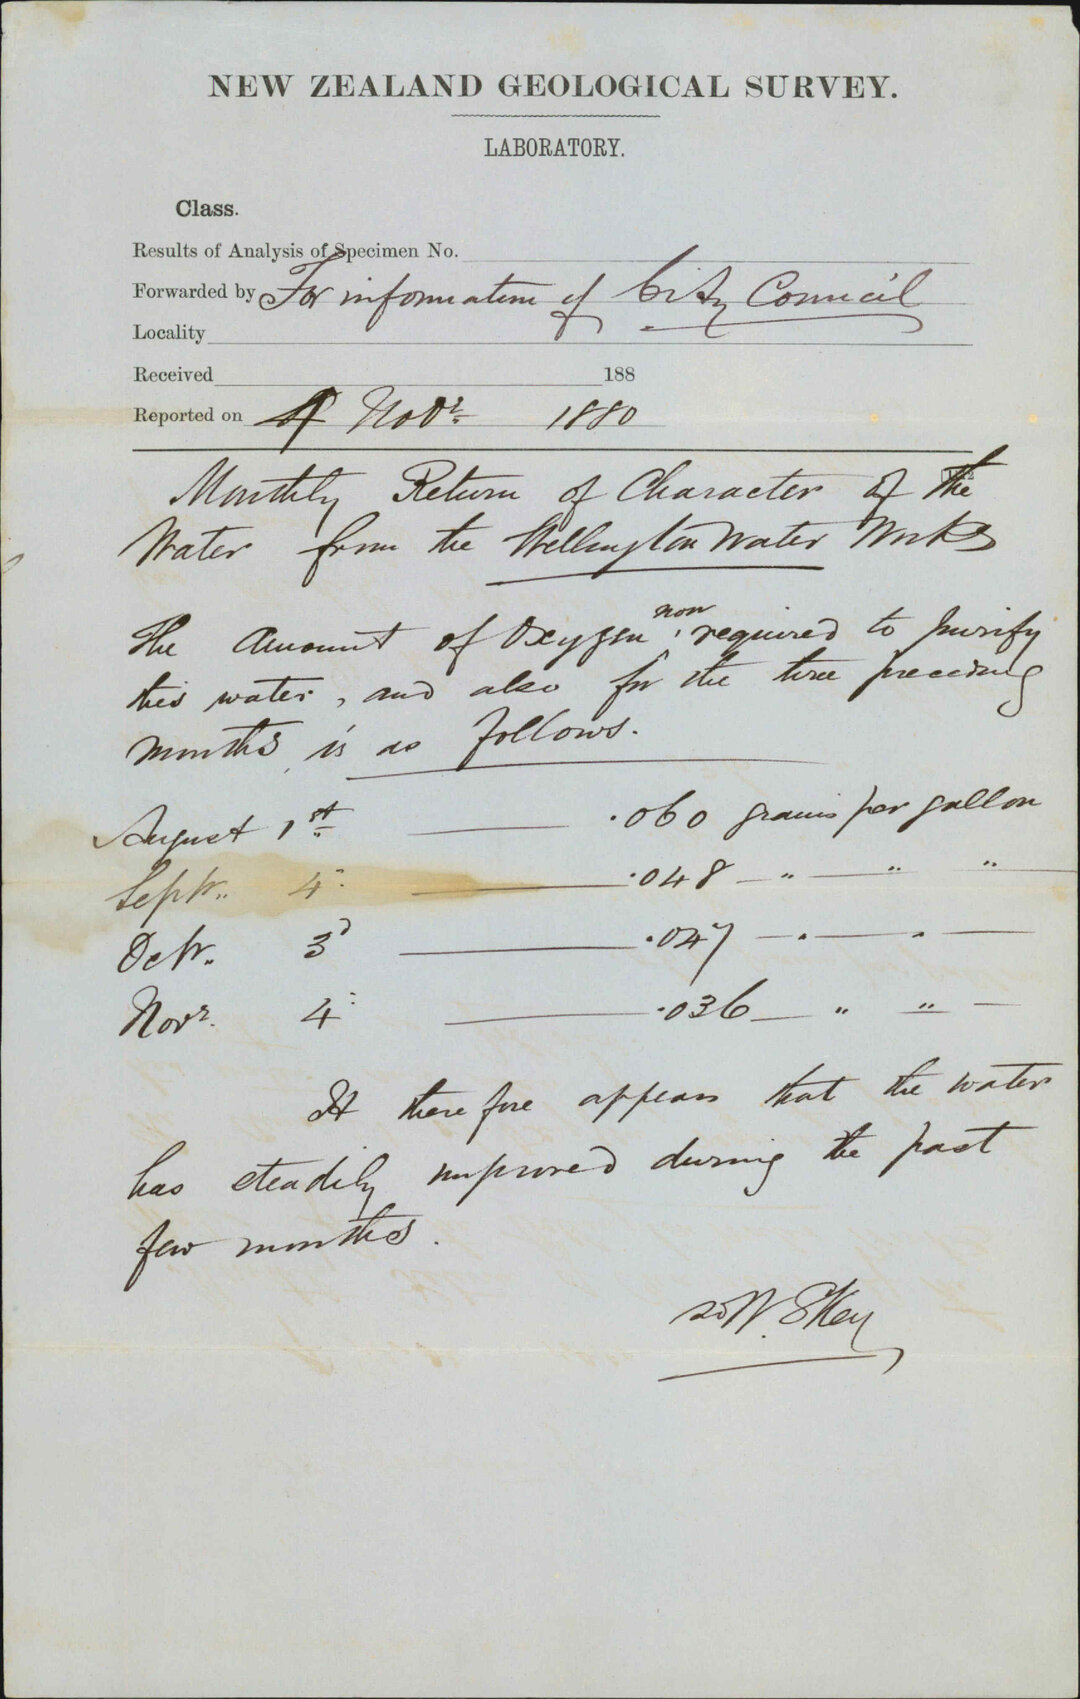 NEW ZEALAND GEOLOGICAL SURVEY.
LABORATORY.
Class.
Results of Analysis of Specimen No.
Forwarded by For information of City Council
Locality
Received 188
Reported on 4 Novr. 1880
Monthly Return of Character of the
Water from the Wellington Water Works
The Amount of Oxygen now required to purify
this water, and also for the three preceding
months, is as follows.
August 1st — .060 grains per gallon
Septr. 4 — .048 — " — " "
Octr. 3d — .047 — " — " —
Novr. 4 — .036 — " " —
It therefore appears that the water
has steadily improved during the past
few months.
W. Skey